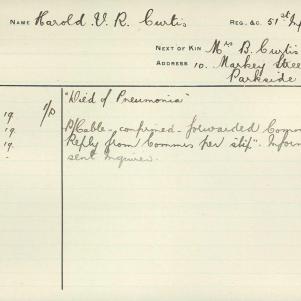 NAME Harold V. R. Curtis REG. &C. 51st
NEXT OF KIN Mrs B. Curtis
ADDRESS 10. Markey Stree
Parkside
19. "Died of Pneumonia"
19. P/Cable - confirmed - forwarded Comm
19. Reply from Commns per slip". Inform
sent Inquirer.